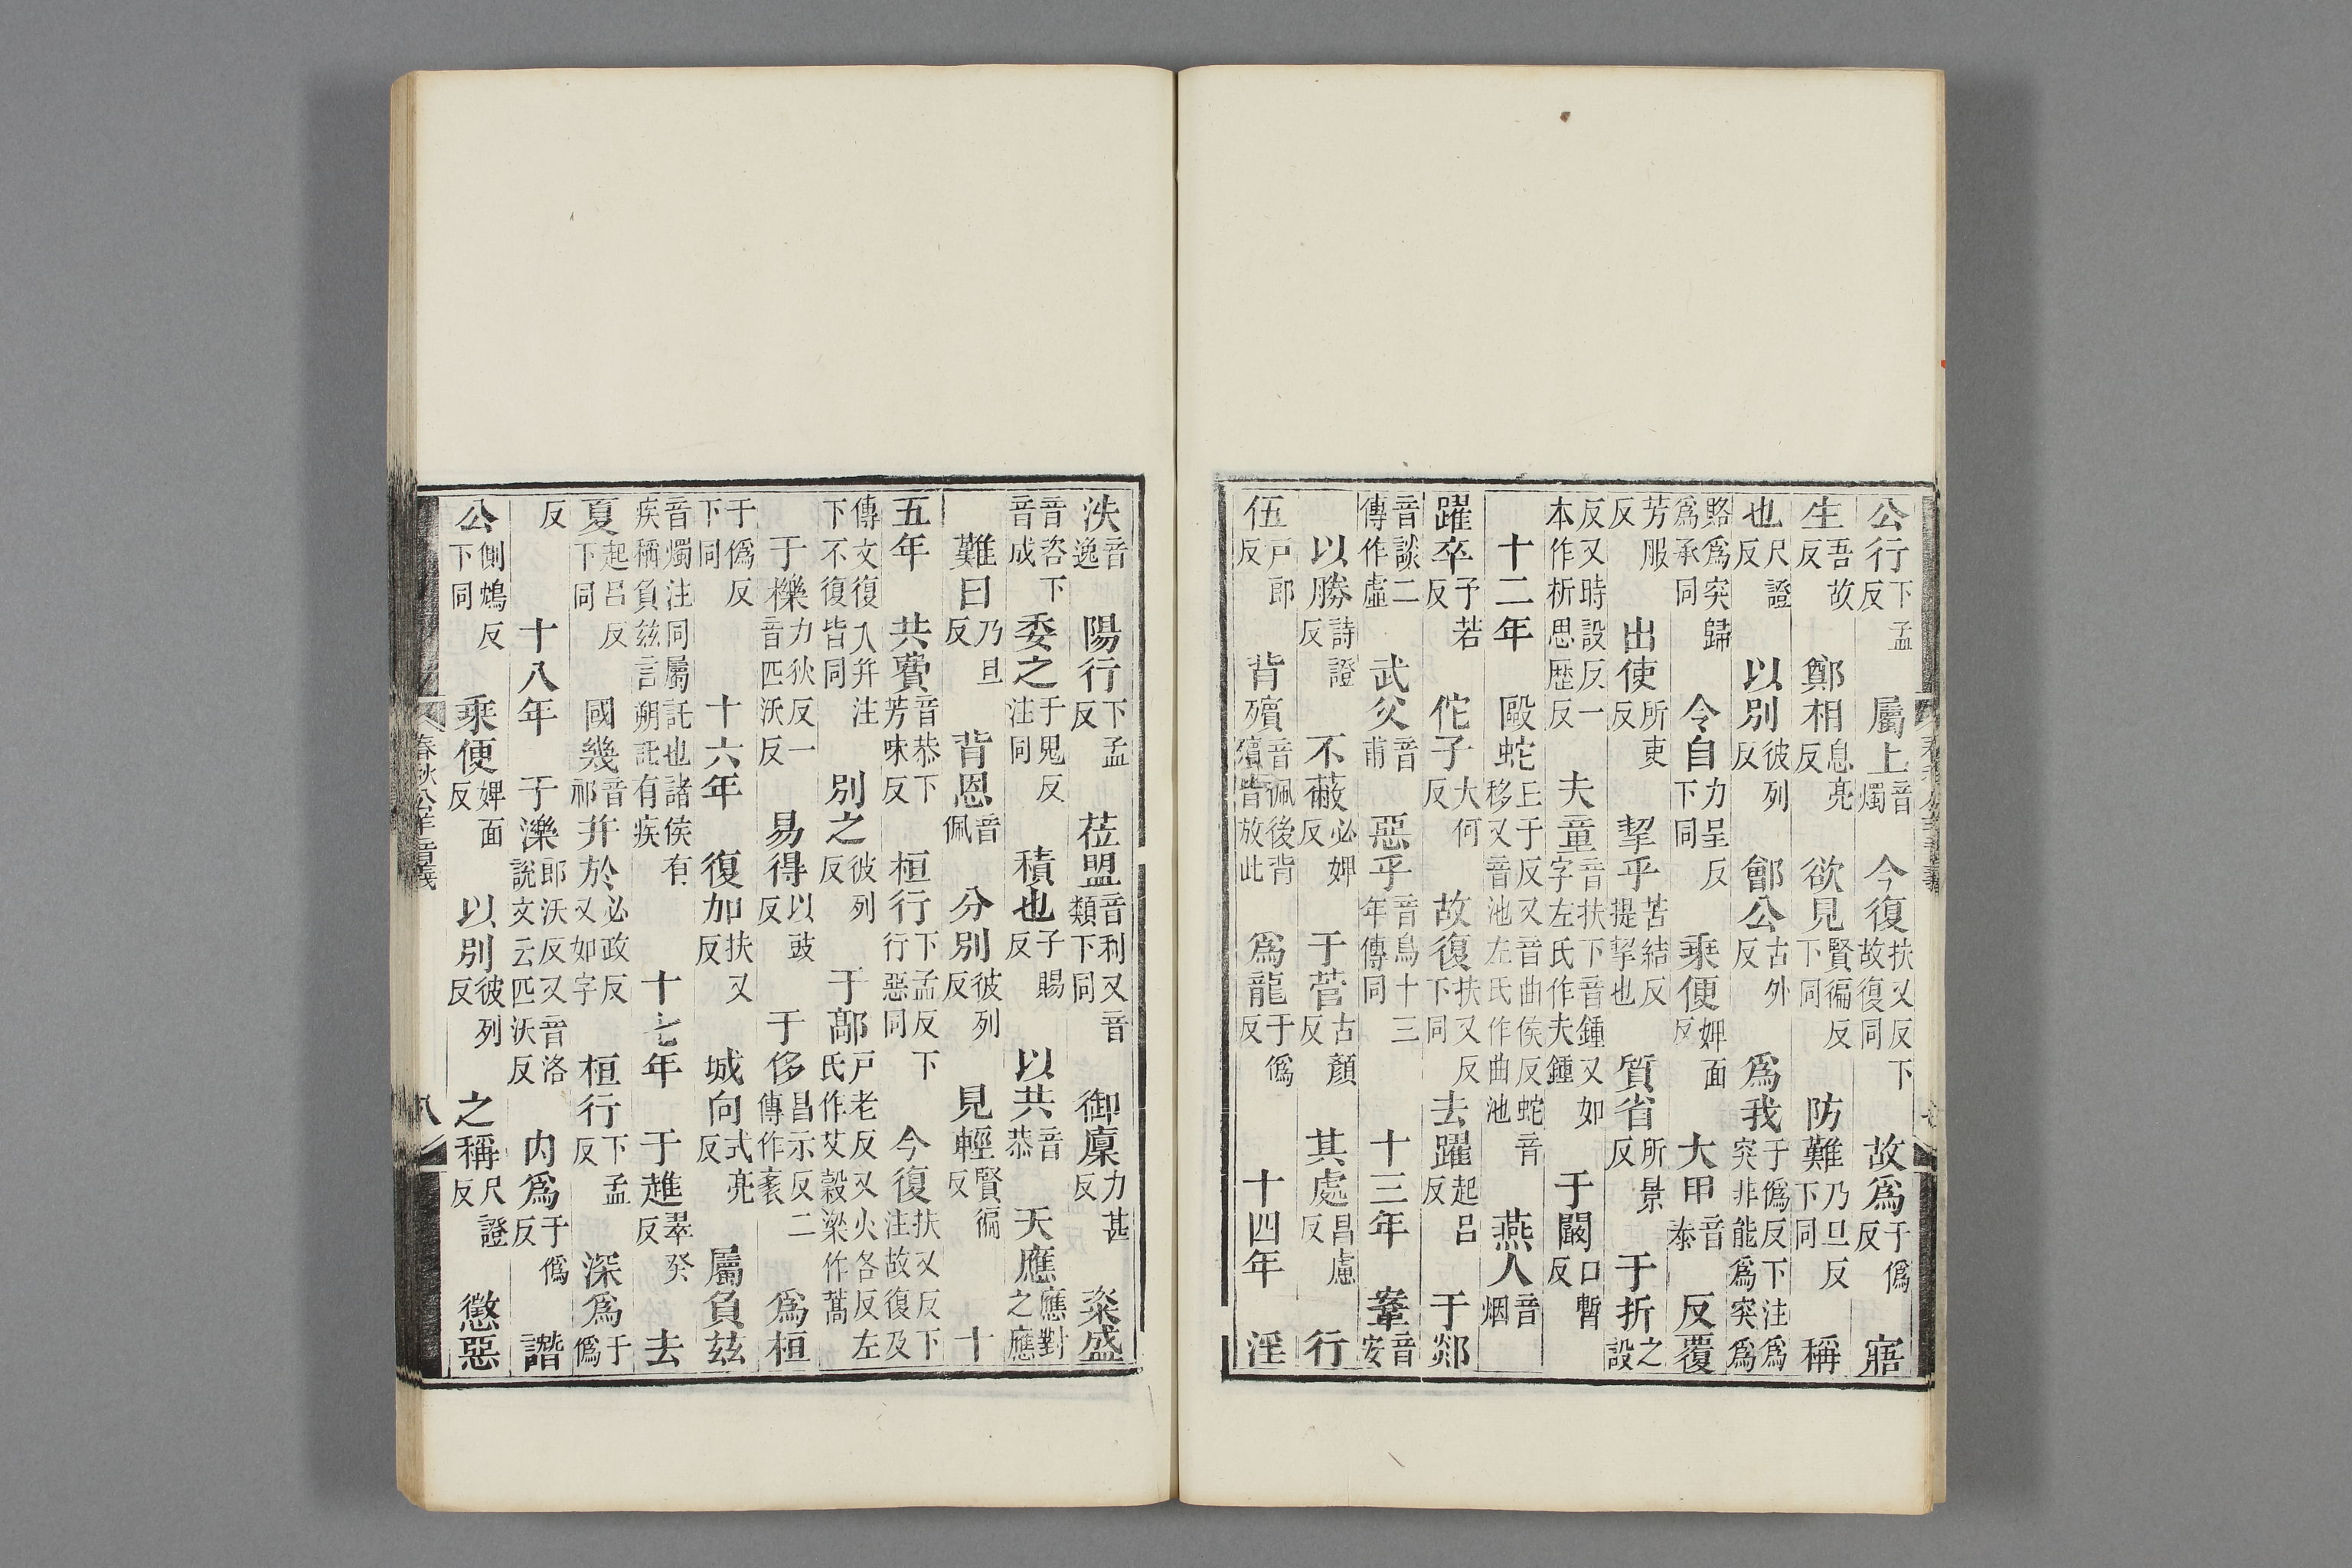 公行下孟反 屬上音燭 今復扶又反下故復同 故爲于僞反 寤
生吾故反 鄭相息亮反 欲見賢徧反下同 防難乃旦反下同 稱
也尺證反 以別彼列反 鄶公古外反 爲我于僞反下注爲突非能爲突爲
賂爲突歸爲承同 令自力呈反下同 乘便婢面反 大甲音泰 反覆
芳服反 出使所吏反 挈乎苦結反提挈也 質省所景反 于折之設
反又時設反一本作析思歷反 夫童音扶下音鍾又如字左氏作夫鍾 于闞口暫反
十二年 毆蛇丘于反又音曲侯反蛇音移又音池左氏作曲池 燕人音烟
躍卒予若反 佗子大何反 故復扶又反下同 去躍起呂反 于郯
音談二傳作虛 武父音甫 惡乎音烏十三年傳同 十三年 鞌音安
以勝詩證反 不蔽必婢反 于菅古顏反 其處昌慮反 行
伍戶郎反 背殯音佩後背殯皆放此 爲龍于僞反 十四年 淫
泆音逸 陽行下孟反 莅盟音利又音類下同 御廩力甚反 粢盛
音咨下音成 委之于鬼反注同 積也子賜反 以共音恭 天應應對之應
難曰乃旦反 背恩音佩 分別彼列反 見輕賢徧反 十
五年 共費音恭下芳味反 桓行下孟反下行惡同 今復扶又反下注故復及
傳文復入幷注下不復皆同 別之彼列反 于鄗戶老反又火各反左氏作艾穀梁作蒿
于櫟力狄反一音匹沃反 易得以豉反 于侈昌示反二傳作袲 爲桓
于僞反下同 十六年 復加扶又反 城向式亮反 屬負茲
音燭注同屬託也諸侯有疾稱負茲言朔託有疾 十七年 于趡翠癸反 去
夏起呂反下同 國幾音祁 幷於必政反又如字 桓行下孟反 深爲于僞
反 十八年 于濼郎沃反又音洛說文云匹沃反 內爲于僞反 譖
公側鴆反下同 乘便婢面反 以別彼列反 之稱尺證反 懲惡
春秋公羊音義
八